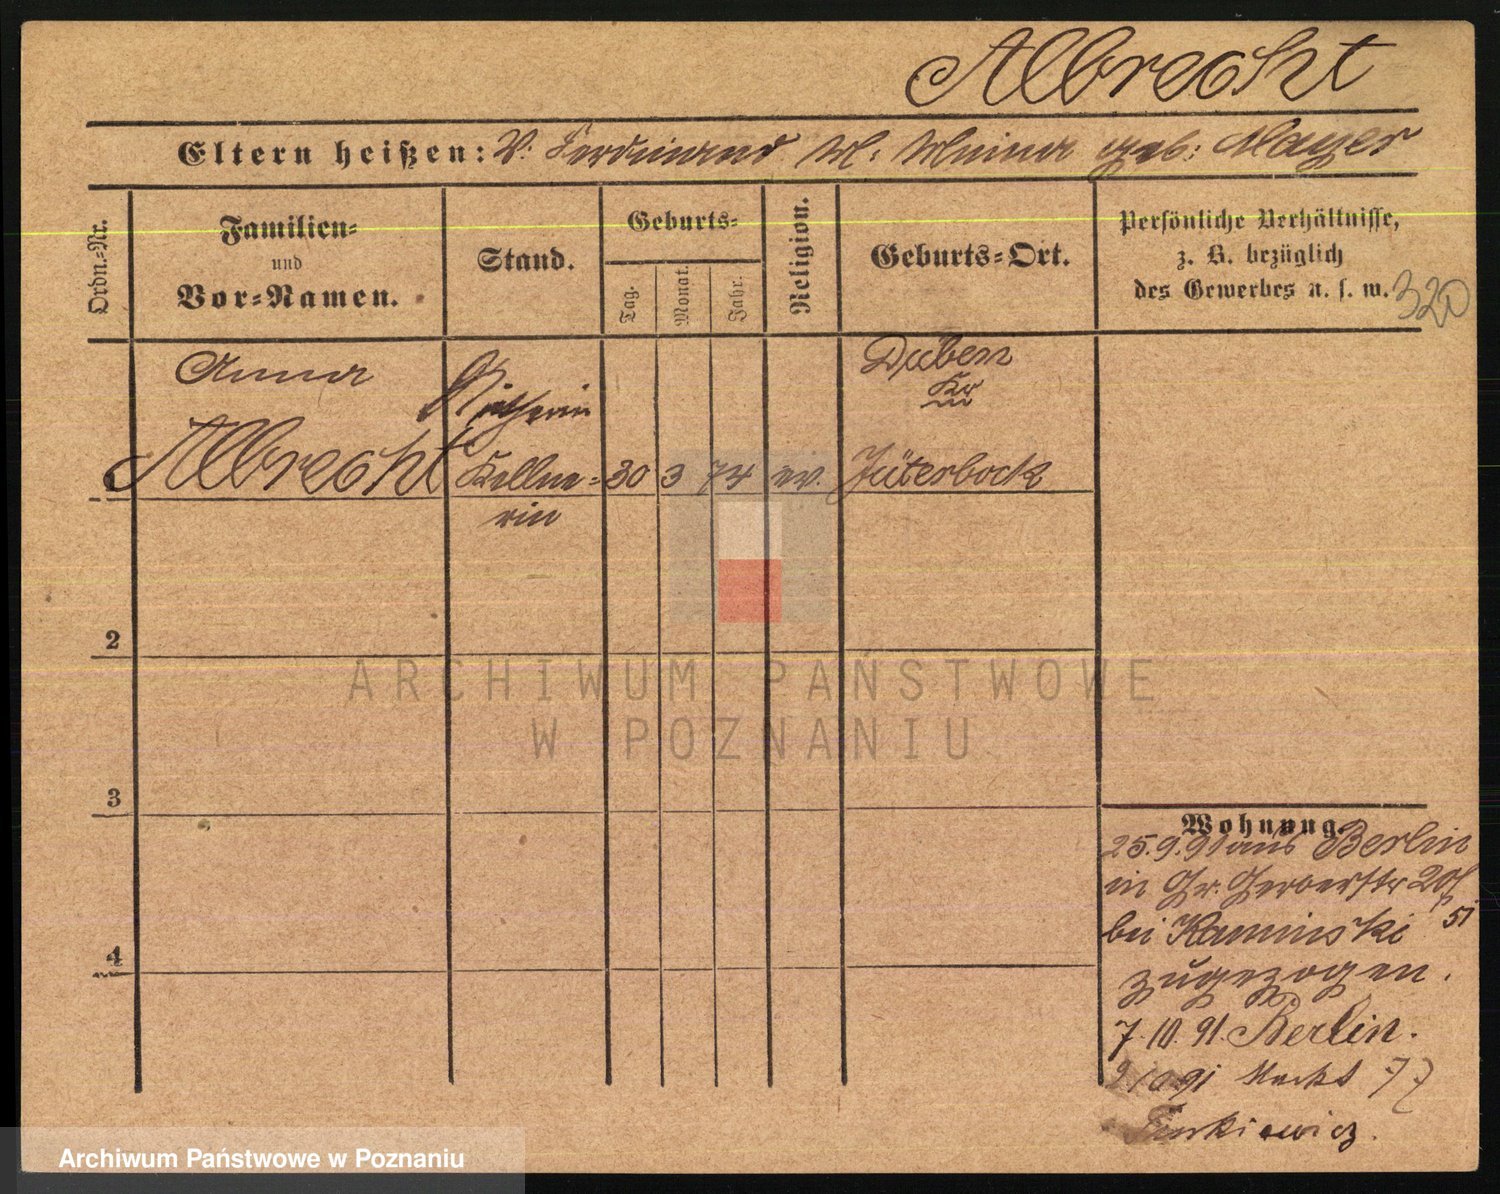 Albrecht
Eltern heißen: V. Ferdinand M. Minna geb: Mayer
Ordn.-Nr.
Familien-
und
Vor-Namen.
Stand.
Geburts-
Tag.
Monat.
Jahr.
Religion.
Geburts-Ort.
Persönliche Verhältnisse,
z. B. bezüglich
des Gewerbes u. s. w.
320
Anna
Albrecht
Kellne-
rin
30 3 74 ev.
Düben
Kr
Jüterbock
2
3
4
Wohnung.
25.9.91 aus Berlin
in Gr. Gerberstr 20
51
bei Kaminski
zugezogen.
7.10.91. Berlin.
91 Markt 77
ARCHIWUM PAŃSTWOWE
W POZNANIU
Archiwum Państwowe w Poznaniu